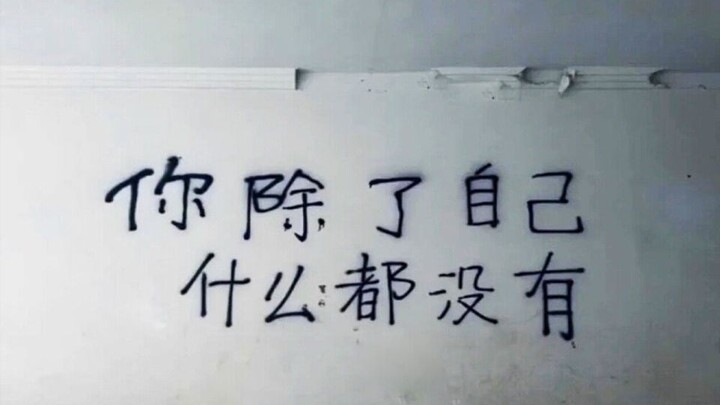 你除了自己
什么都没有